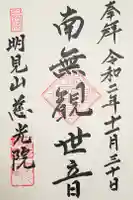 奉拝 令和二年十一月三十日
南無観世音
明見山 慈光院